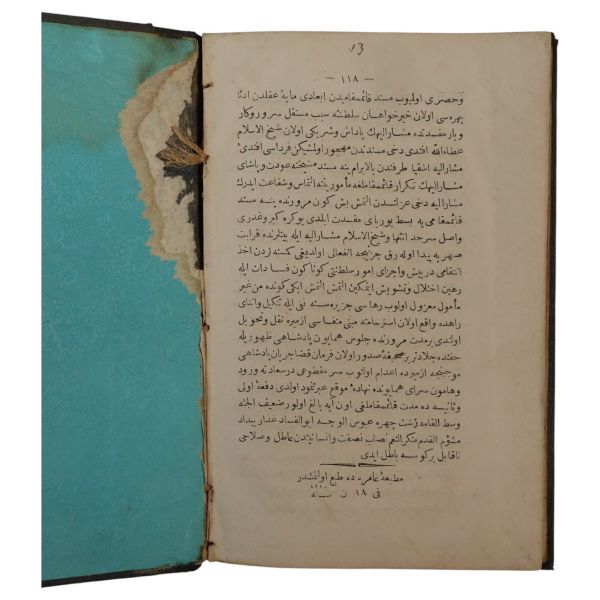 13
— ١١٨ —
وحصری اولیوب مسند قائممقامیدن ابعادی مایهٔ عقلدن ادنا
بهره سی اولان خیرخواهان سلطنته سبب مستقل سرور وکار
وبار مفسدتده مشارالیهك پاداش وشریکی اولان شیخ الاسلام
عطاءالله افندی دخی مسندندن مهجور اولمشیکن فرداسی افندیٔ
مشارالیه اشقیا طرفندن بالابرام ینه مسند مشیخته عودت وپاشای
مشارالیهك تکرار قائممقاملغه مأموریتنه التماس وشفاعت ایدرك
مشارالیه دخی عزلندن التمش بش کون مرورنده ینه مسند
قائممقامی یه بسط بوریای مفسدت ایلدی بوکره کبر وغدری
واصل سرحد انتها وشیخ الاسلام مشارالیه ایله بینلرنده قرابت
صهریه پیدا اوله رق جزئیجه انفعالی اولدیغی کسنه لردن اخذ
انتقامی درپیش واجرای امور سلطنتی کوناکون فسادات ایله
رهین اختلال وتشویش ایتمکین التمش التمش ایکی کونده من غیر
مأمول معزول اولوب رهاسی جزیره سنه نفی ایله تنکیل واثنای
راهده واقع اولان استرحامنه مبنی منفاسی ازمیره نقل وتحویل
اولندی برمدت مرورنده جلوس همایون پادشاهی ظهوریله
حقنده جلادتر برصحیفهٔ صدور اولان فرمان قضا جریان پادشاهی
موجبنجه ازمیرده اعدام اولنوب سر مقطوعی درسعادته ورود
وهامون سرای همایونده نهادهٔ موقع عبرتنمود اولدی دفعهٔ اولی
وثانیه ده مدت قائممقاملغی اون آیه بالغ اولور ضعیف الجثه
وسط القامه زشت چهره عبوس الوجه ابوالفساد غدار بیداد
مشؤم القدم منکر النعم نصاب نصفت وانسانیتدن عاطل وسلاحی
ناقابل برکوسهٔ باطل ایدی
مطبعهٔ عامره ده طبع اولنمشدر
فی ١٨ ن سنهٔ